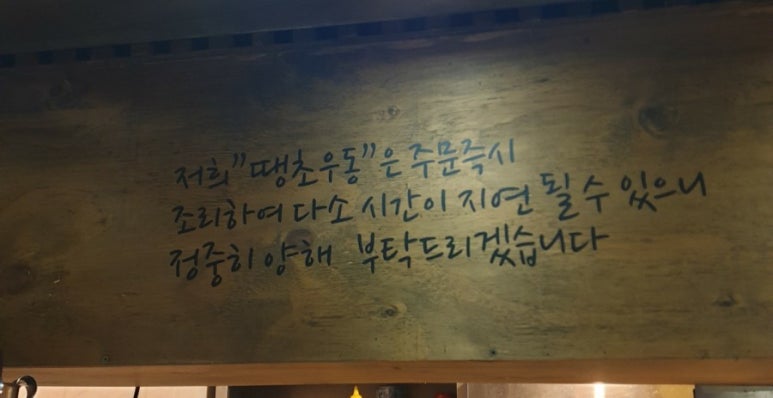 저희 "땡초우동"은 주문즉시
조리하여 다소 시간이 지연 될 수 있으니
정중히 양해 부탁드리겠습니다